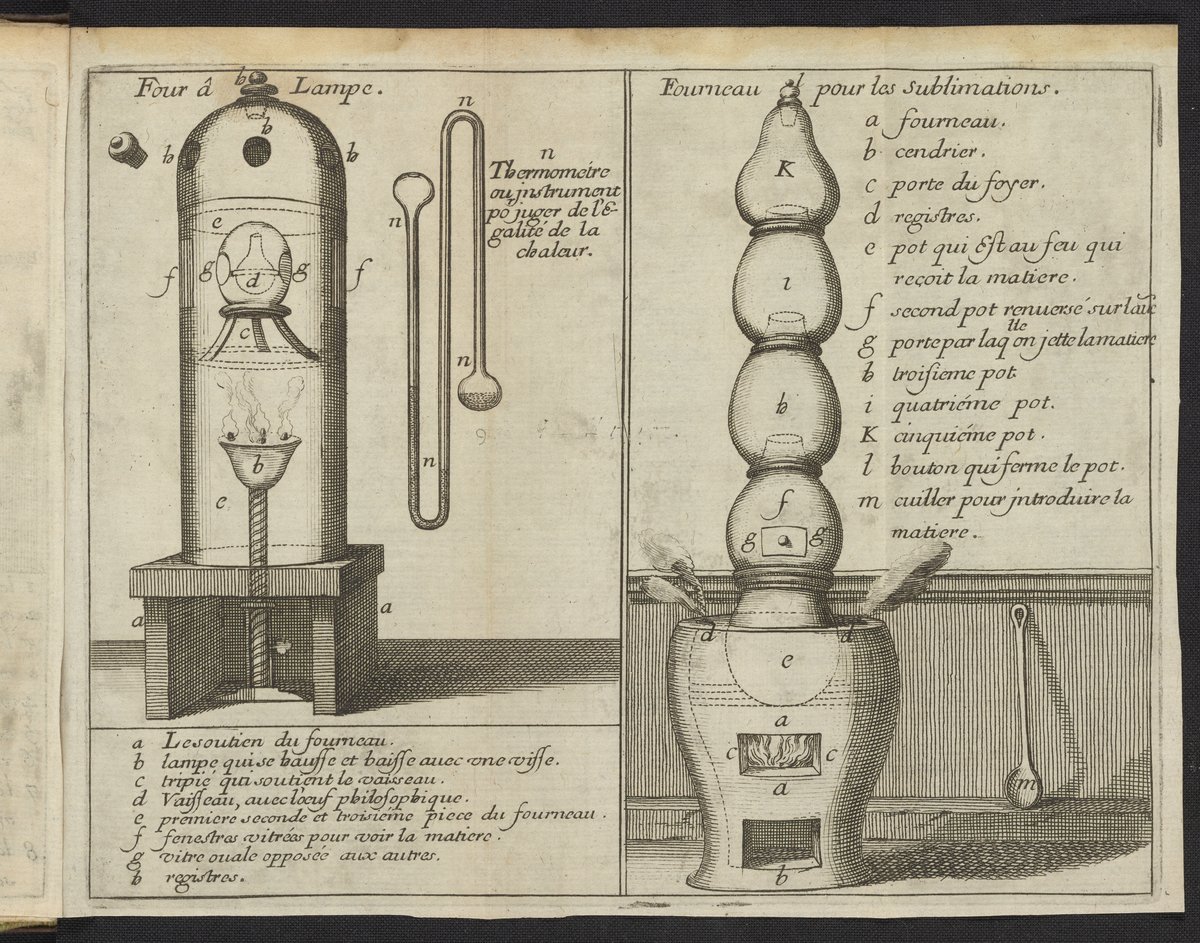 Four â Lampe.
h
h
h
h
n
n
Thermométre
ou jnstrument
po juger de l'E-
galité de la
chaleur.
n
n
n
n
e
g
g
d
f
f
c
b
e
a
a
a Le soutien du fourneau.
b lampe qui se hausse et baisse avec vne visse.
c tripié qui soutient le vaisseau.
d Vaisseau, avec l'oeuf philosophique.
e premiere seconde et troisiéme piece du fourneau.
f fenestres vitrées pour voir la matiere.
g vitre ovale opposée aux autres.
h registres.
Fourneau pour les sublimations.
l
K
i
h
f
g
g
d
d
e
a
c
c
a
b
m
a fourneau.
b cendrier.
c porte du foyer.
d registres.
e pot qui Est au feu qui
reçoit la matiere.
f second pot renuersé sur
g porte par laqlle on jette la matiere
h troisieme pot
i quatriéme pot.
K cinquiéme pot.
l bouton qui ferme le pot.
m cuiller pour jntroduire la
matiere.